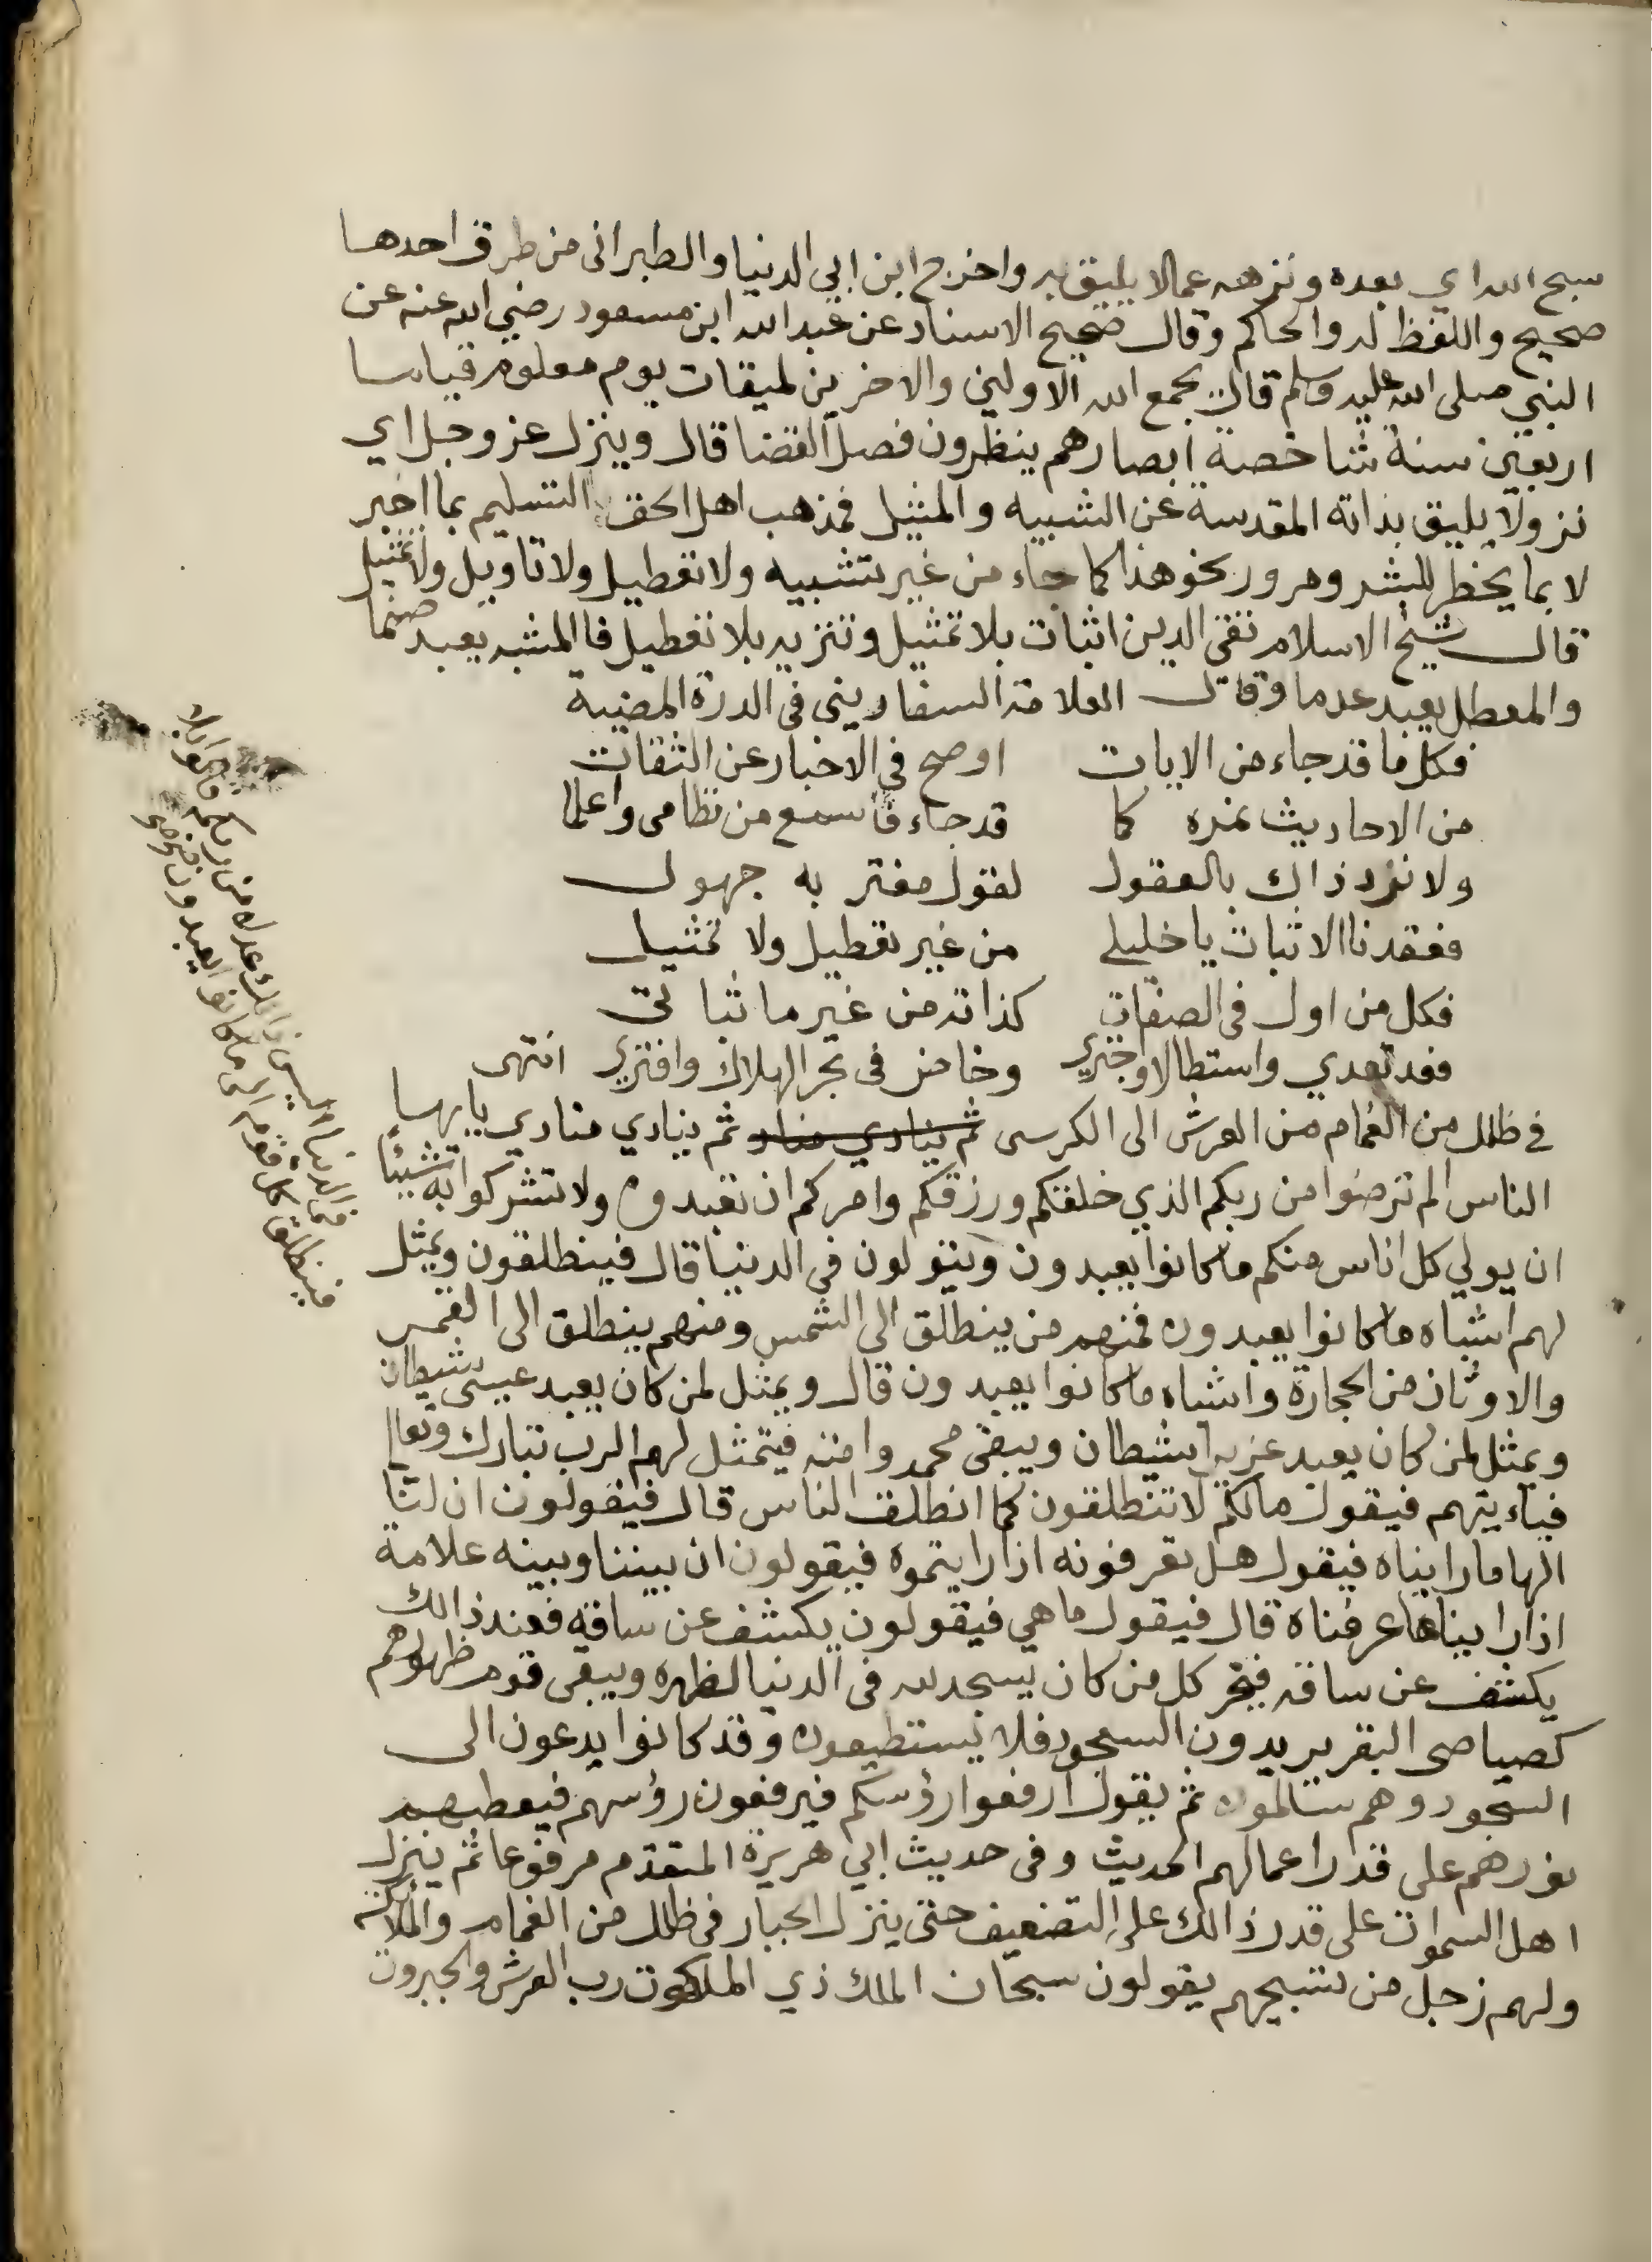 سبح الله اي بعده ونزهه عما لا يليق به واخرج ابن ابي الدنيا والطبراني من طرق احدها
صحيح واللفظ له والحاكم وقال صحيح الاسناد عن عبد الله ابن مسعود رضي الله عنه عن
النبي صلى الله عليه وسلم قال يجمع الله الاولين والاخرين لميقات يوم معلوم قياما
اربعين سنة شاخصة ابصارهم ينظرون فصل القضا قال وينزل عز وجل اي
نزولا يليق بذاته المقدسة عن الشبيه والمثيل فمذهب اهل الحق التسليم بما اخبر
لا بما يخطر للبشر ومرور نحو هذا كما جاء من غير تشبيه ولا تعطيل ولا تاويل ولا تمثيل
قال شيخ الاسلام تقي الدين اثبات بلا تمثيل وتنزيه بلا تعطيل فالمشبه يعبد صنما
والمعطل يعبد عدما وقال العلامة السفاريني في الدرة المضية
فكل ما قد جاء من الايات اوصح في الاخبار عن الثقات
من الاحاديث نمره كما قد جاء فاسمع من نظامي واعلما
ولا نرد ذاك بالعقول لقول مفتر به جهول
فعقدنا الاثبات يا خليلي من غير تعطيل ولا تمثيل
فكل من اول في الصفات كذاته من غير ما اثباتي
فقد تعدي واستطالا واجتري وخاض في بحر الهلاك وافتري انتهى
في ظلل من الغمام من العرش الى الكرسي ثم ينادي مناد ثم ينادي منادي يا يها
الناس الم ترضوا من ربكم الذي خلقكم ورزقكم وامركم ان تعبدوه ولا تشركوا به شيئا
ان يولي كل اناس منكم ما كانوا يعبدون ويتولون في الدنيا قال فينطلقون ويمثل
لهم اشباه ما كانوا يعبدون فمنهم من ينطلق الى الشمس ومنهم ينطلق الى القمر
والاوثان من الحجارة واشباه ما كانوا يعبدون قال ويمثل لمن كان يعبد عيسى شيطان
ويمثل لمن كان يعبد عزيرا شيطان ويبقى محمد وامته فيتمثل لهم الرب تبارك وتعالى
فياءتيهم فيقول مالكم لا تنطلقون كما انطلق الناس قال فيقولون ان لنا
الها ما رايناه فيقول هل تعرفونه اذا رايتموه فيقولون ان بيننا وبينه علامة
اذا رايناها عرفناه قال فيقول ما هي فيقولون يكشف عن ساقه فعند ذالك
يكشف عن ساقه فيخر كل من كان يسجد لله في الدنيا لظهره ويبقى قوم ظهورهم
كصياصي البقر يريدون السجود فلا يستطيعون وقد كانوا يدعون الى
السجود وهم سالمون ثم يقول ارفعوا رؤسكم فيرفعون رؤسهم فيعطيهم
نورهم على قدر اعمالهم الحديث وفي حديث ابي هريرة المتقدم مرفوعا ثم ينزل
اهل السموات على قدر ذالك على التضعيف حتى ينزل الجبار في ظلل من الغمام والملائكة
ولهم زجل من تسبيحهم يقولون سبحان الملك ذي الملكوت رب العرش والجبروت
في الدنيا اليس ذالك عدلا من ربكم قالوا بلى
فينطلق كل قوم الى ما كانوا يعبدون